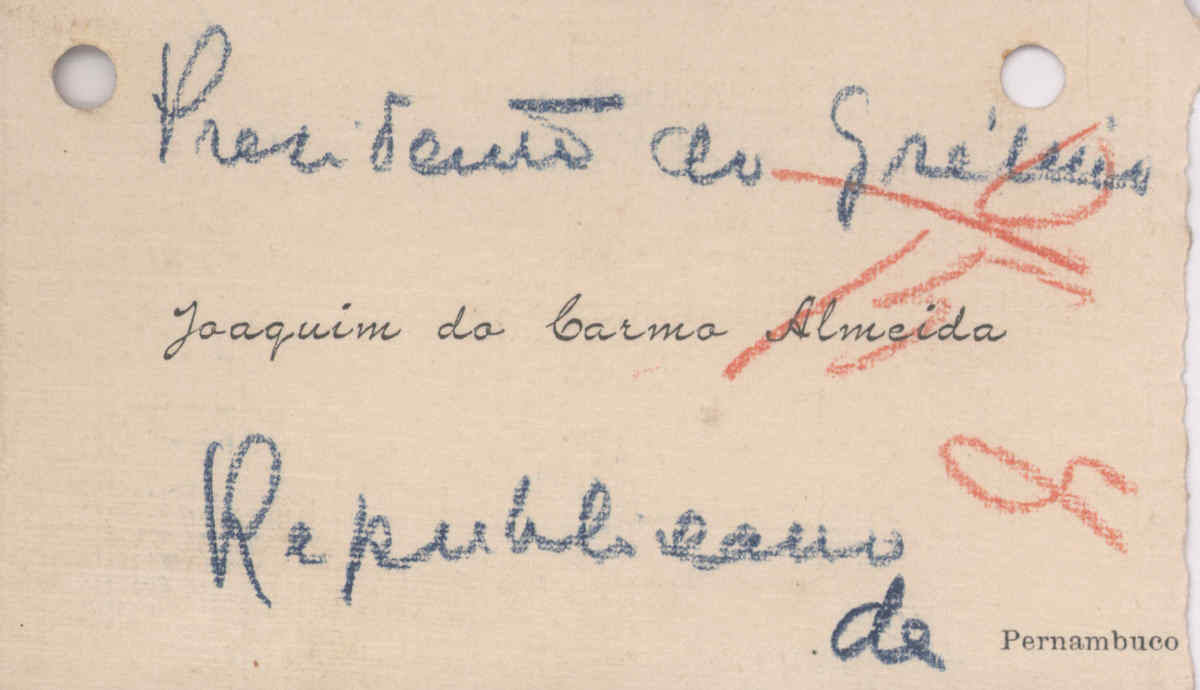 Presidente do Grémio
Joaquim do Carmo Almeida
Republicano
de Pernambuco